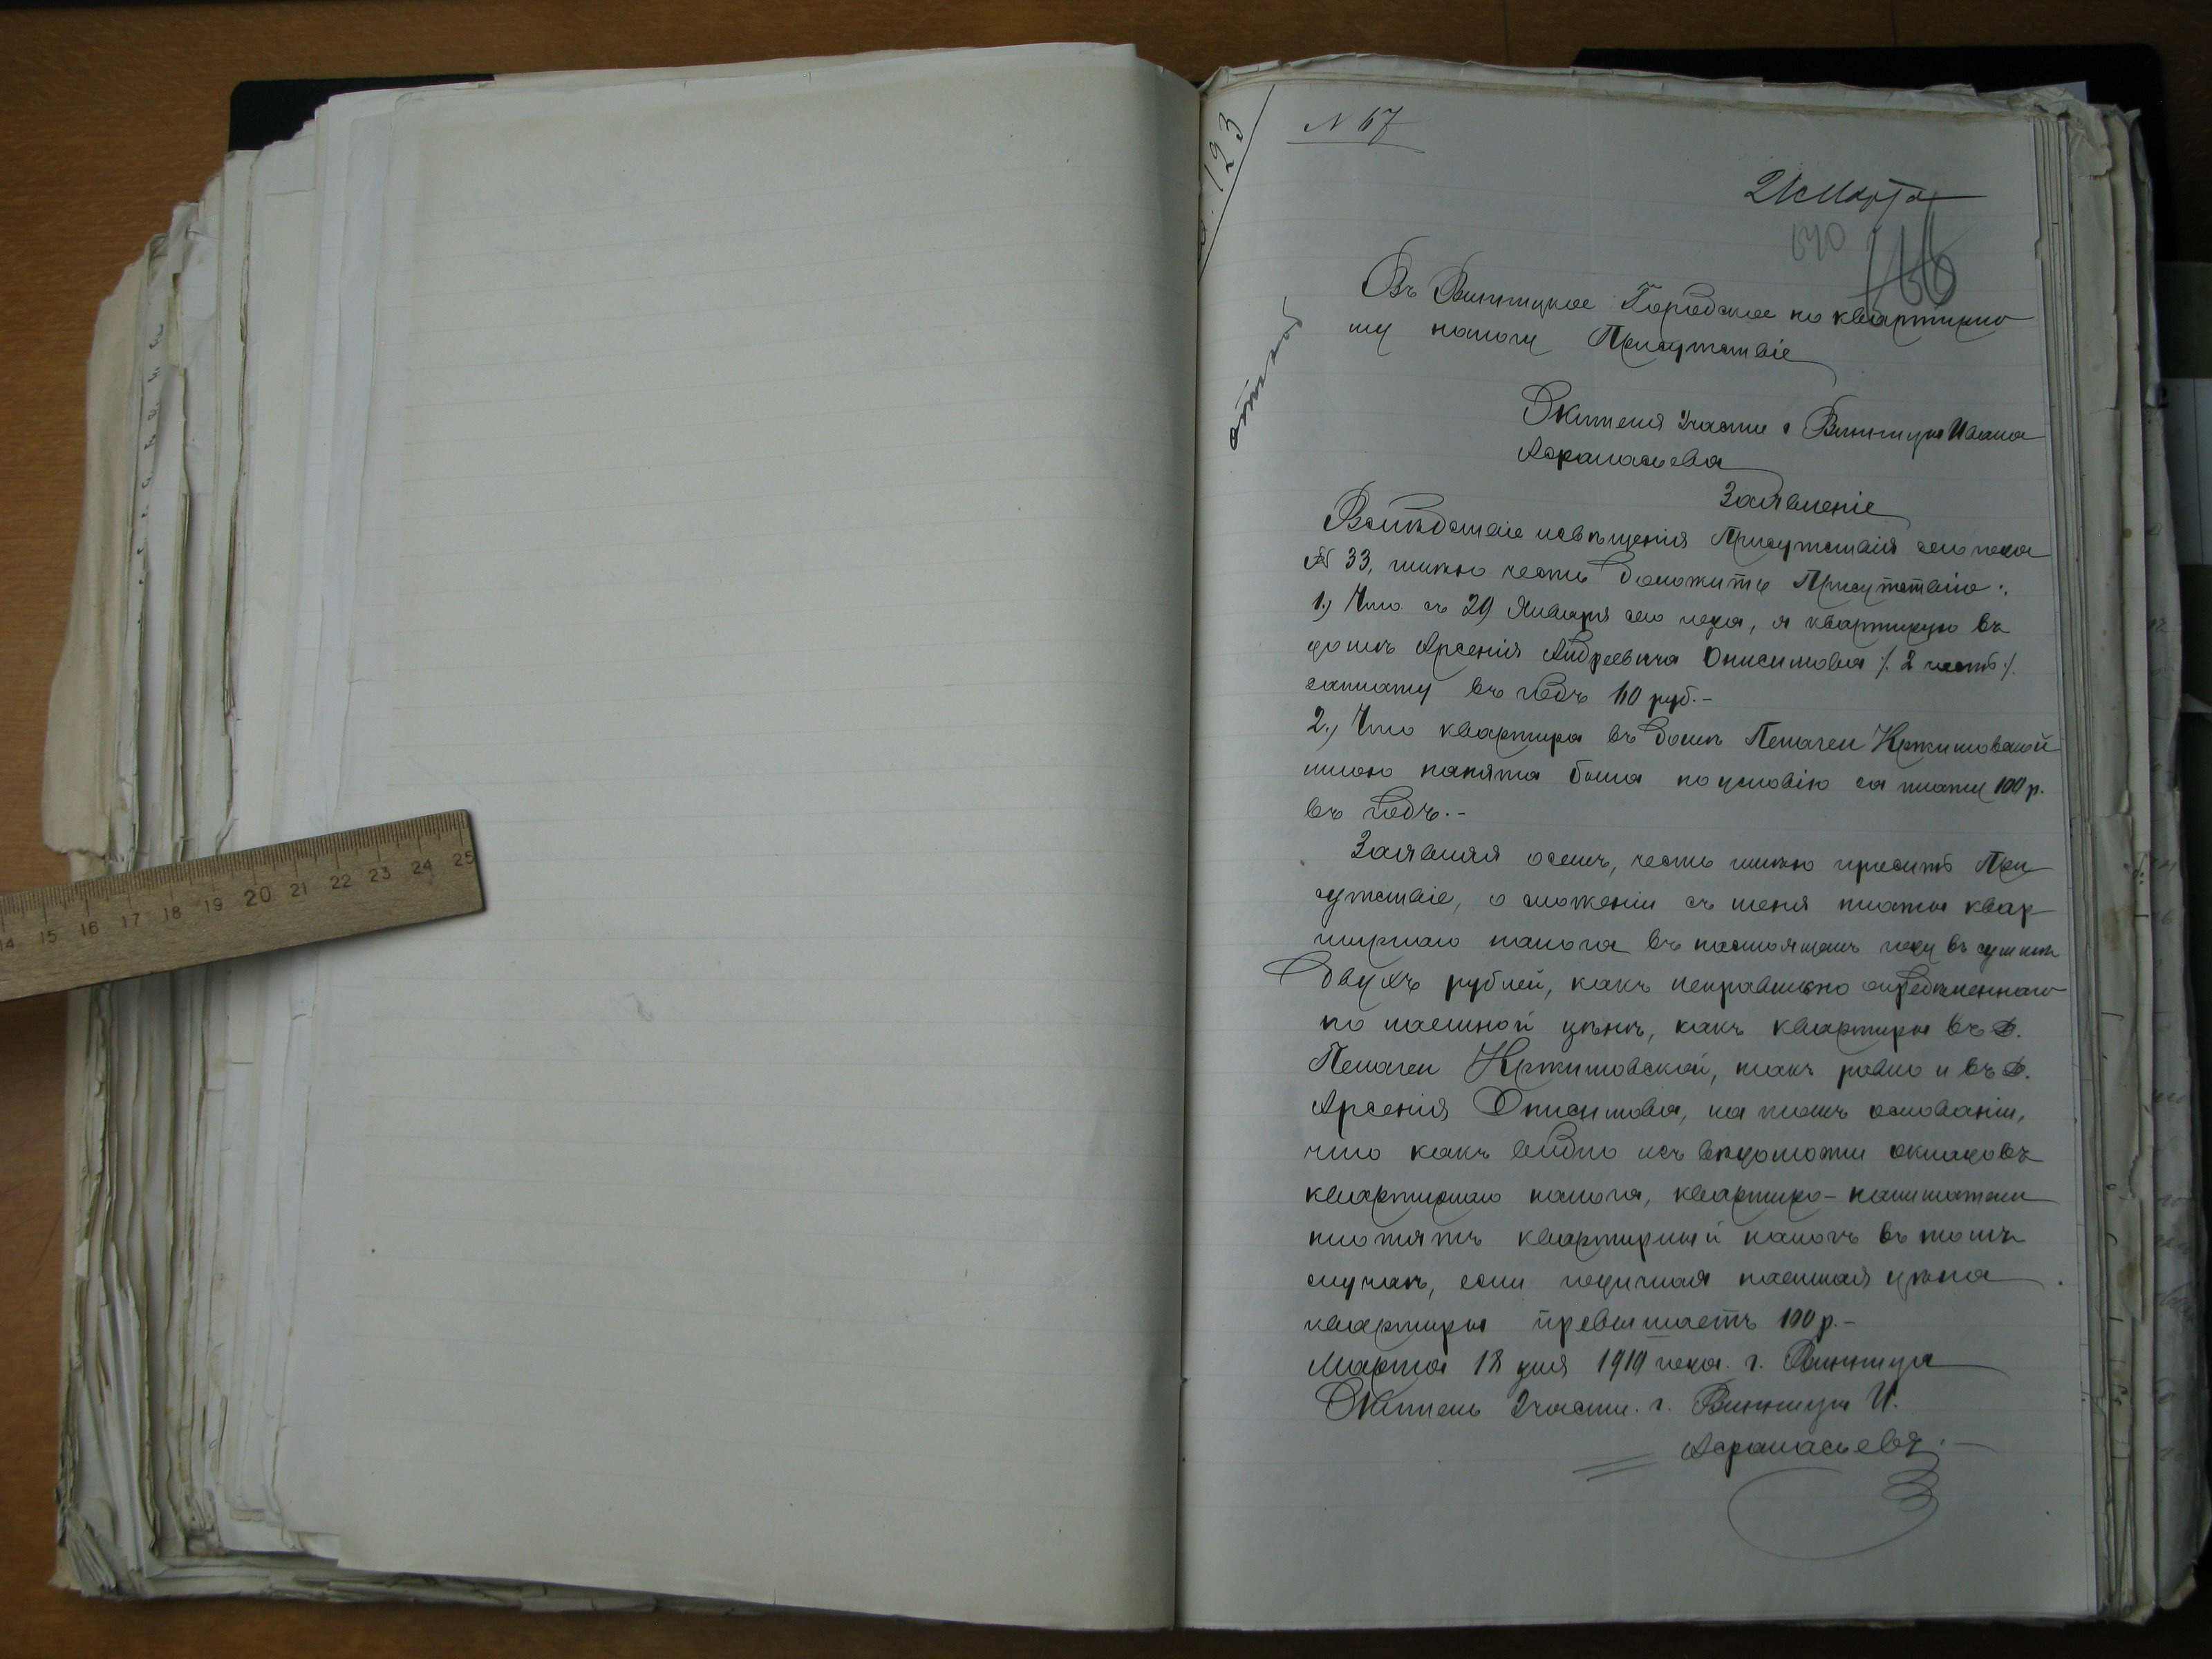 123
отказ
N 67
21 Марта
640
166
Въ Винницкое Городское по квартирно
му налогу Присутствіе
Жителя 2 части г Винницы Ивана
Афанасьева
Заявленіе
Вслѣдствіе извѣщенія Присутствія сего года
№ 33, имѣю честь доложить Присутствію:
1) Что съ 29 Января сего года, я квартирую въ
домѣ Арсенія Андреевича Онисимова /. 2 часть ./.
заплату въ годъ 60 руб.-
2) Что квартира въ домѣ Пелагеи Кржимовской
мною нанята была по условію за плату 100 р.
въ годъ.-
Заявляя о семъ, честь имѣю просить При
сутствіе, о сложеніи съ меня платы квар
тирнаго налога въ настоящемъ году въ суммѣ
двухъ рублей, какъ неправильно опредѣленнаго
по наемной цѣнѣ, какъ квартиры въ д.
Пелагеи Кржимовской, такъ равно и въ д.
Арсенія Онисимова, на томъ основаніи,
что какъ видно изъ вѣдомости окладовъ
квартирнаго налога, квартиро-наниматели
платятъ квартирный налогъ въ томъ
случаѣ, если годичная наемная цѣна
квартиры превышаетъ 100 р.-
Марта 18 дня 1910 года. г. Винница
Житель 2 части. г. Винницы И.
Афанасьевъ.-